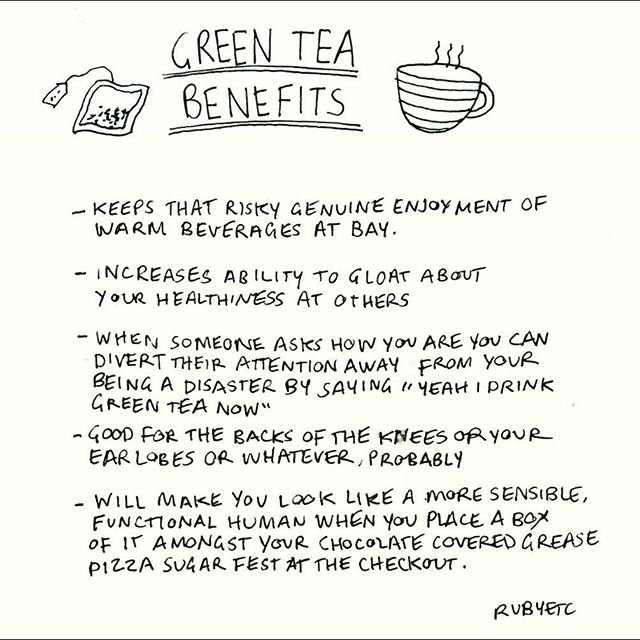 GREEN TEA
BENEFITS
- KEEPS THAT RISKY GENUINE ENJOYMENT OF
WARM BEVERAGES AT BAY.
- INCREASES ABILITY TO GLOAT ABOUT
YOUR HEALTHINESS AT OTHERS
- WHEN SOMEONE ASKS HOW YOU ARE YOU CAN
DIVERT THEIR ATTENTION AWAY FROM YOUR
BEING A DISASTER BY SAYING "YEAH I DRINK
GREEN TEA NOW"
- GOOD FOR THE BACKS OF THE KNEES OR YOUR
EARLOBES OR WHATEVER, PROBABLY
- WILL MAKE YOU LOOK LIKE A MORE SENSIBLE,
FUNCTIONAL HUMAN WHEN YOU PLACE A BOX
OF IT AMONGST YOUR CHOCOLATE COVERED GREASE
PIZZA SUGAR FEST AT THE CHECKOUT.
RUBYETC